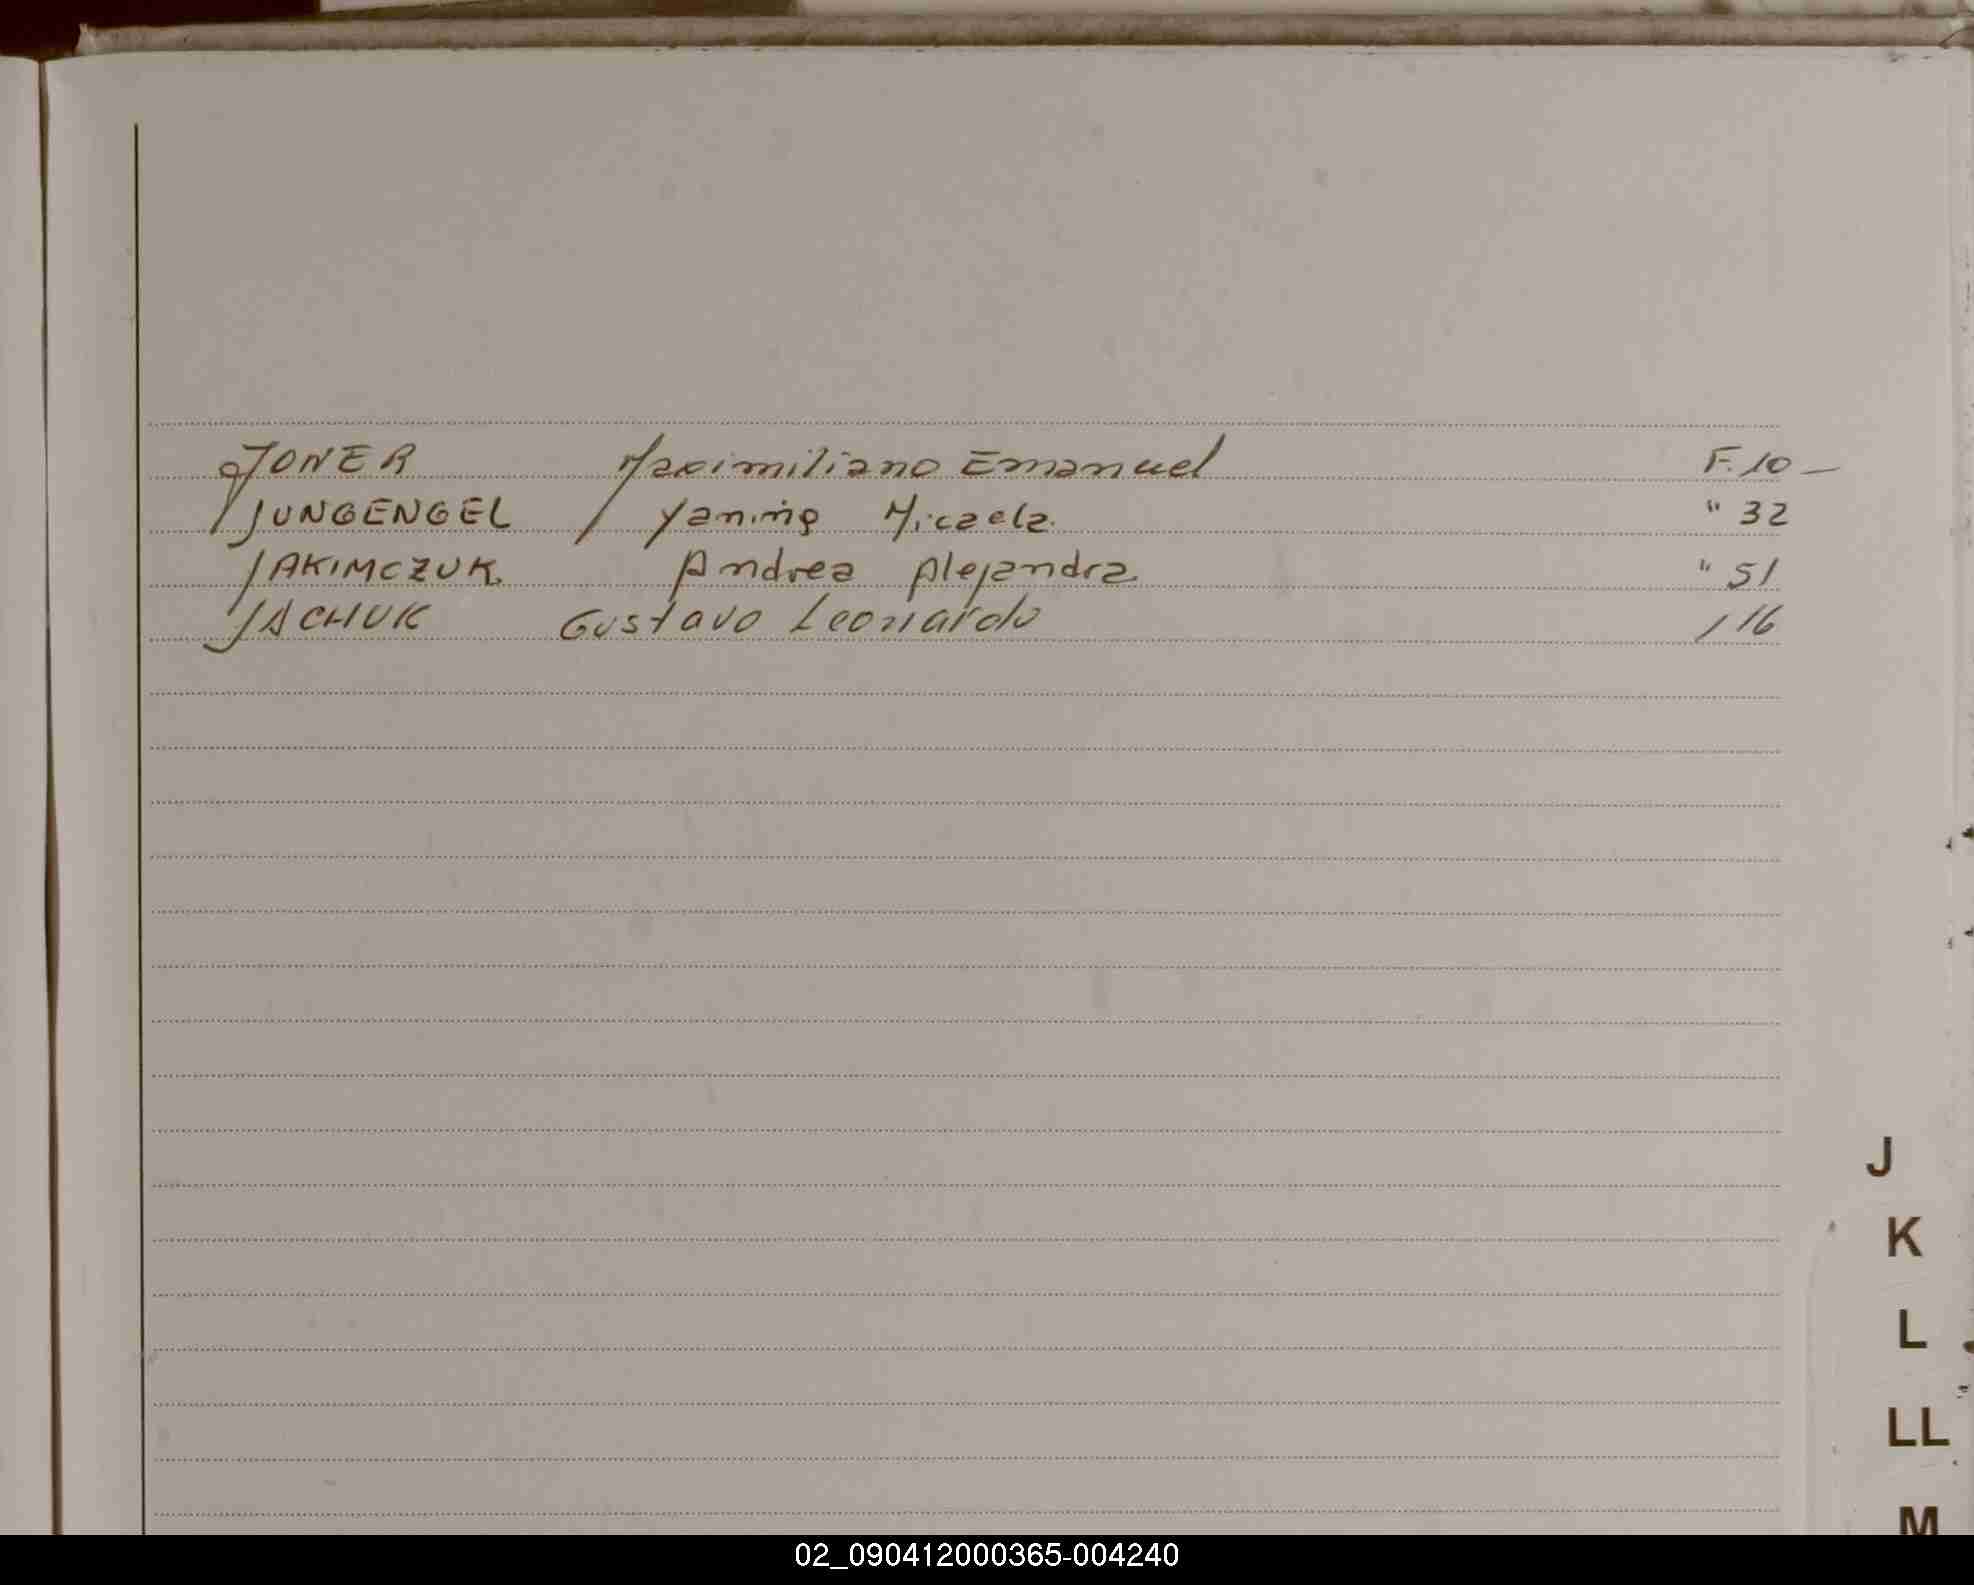 JONER Maximiliano Emanuel F.10 —
JUNGENGEL Yanina Micaela " 32
JAKIMCZUK Andrea Alejandra " 51
JACHUK Gustavo Leonardo 116
J
K
L
LL
M
02_090412000365-004240